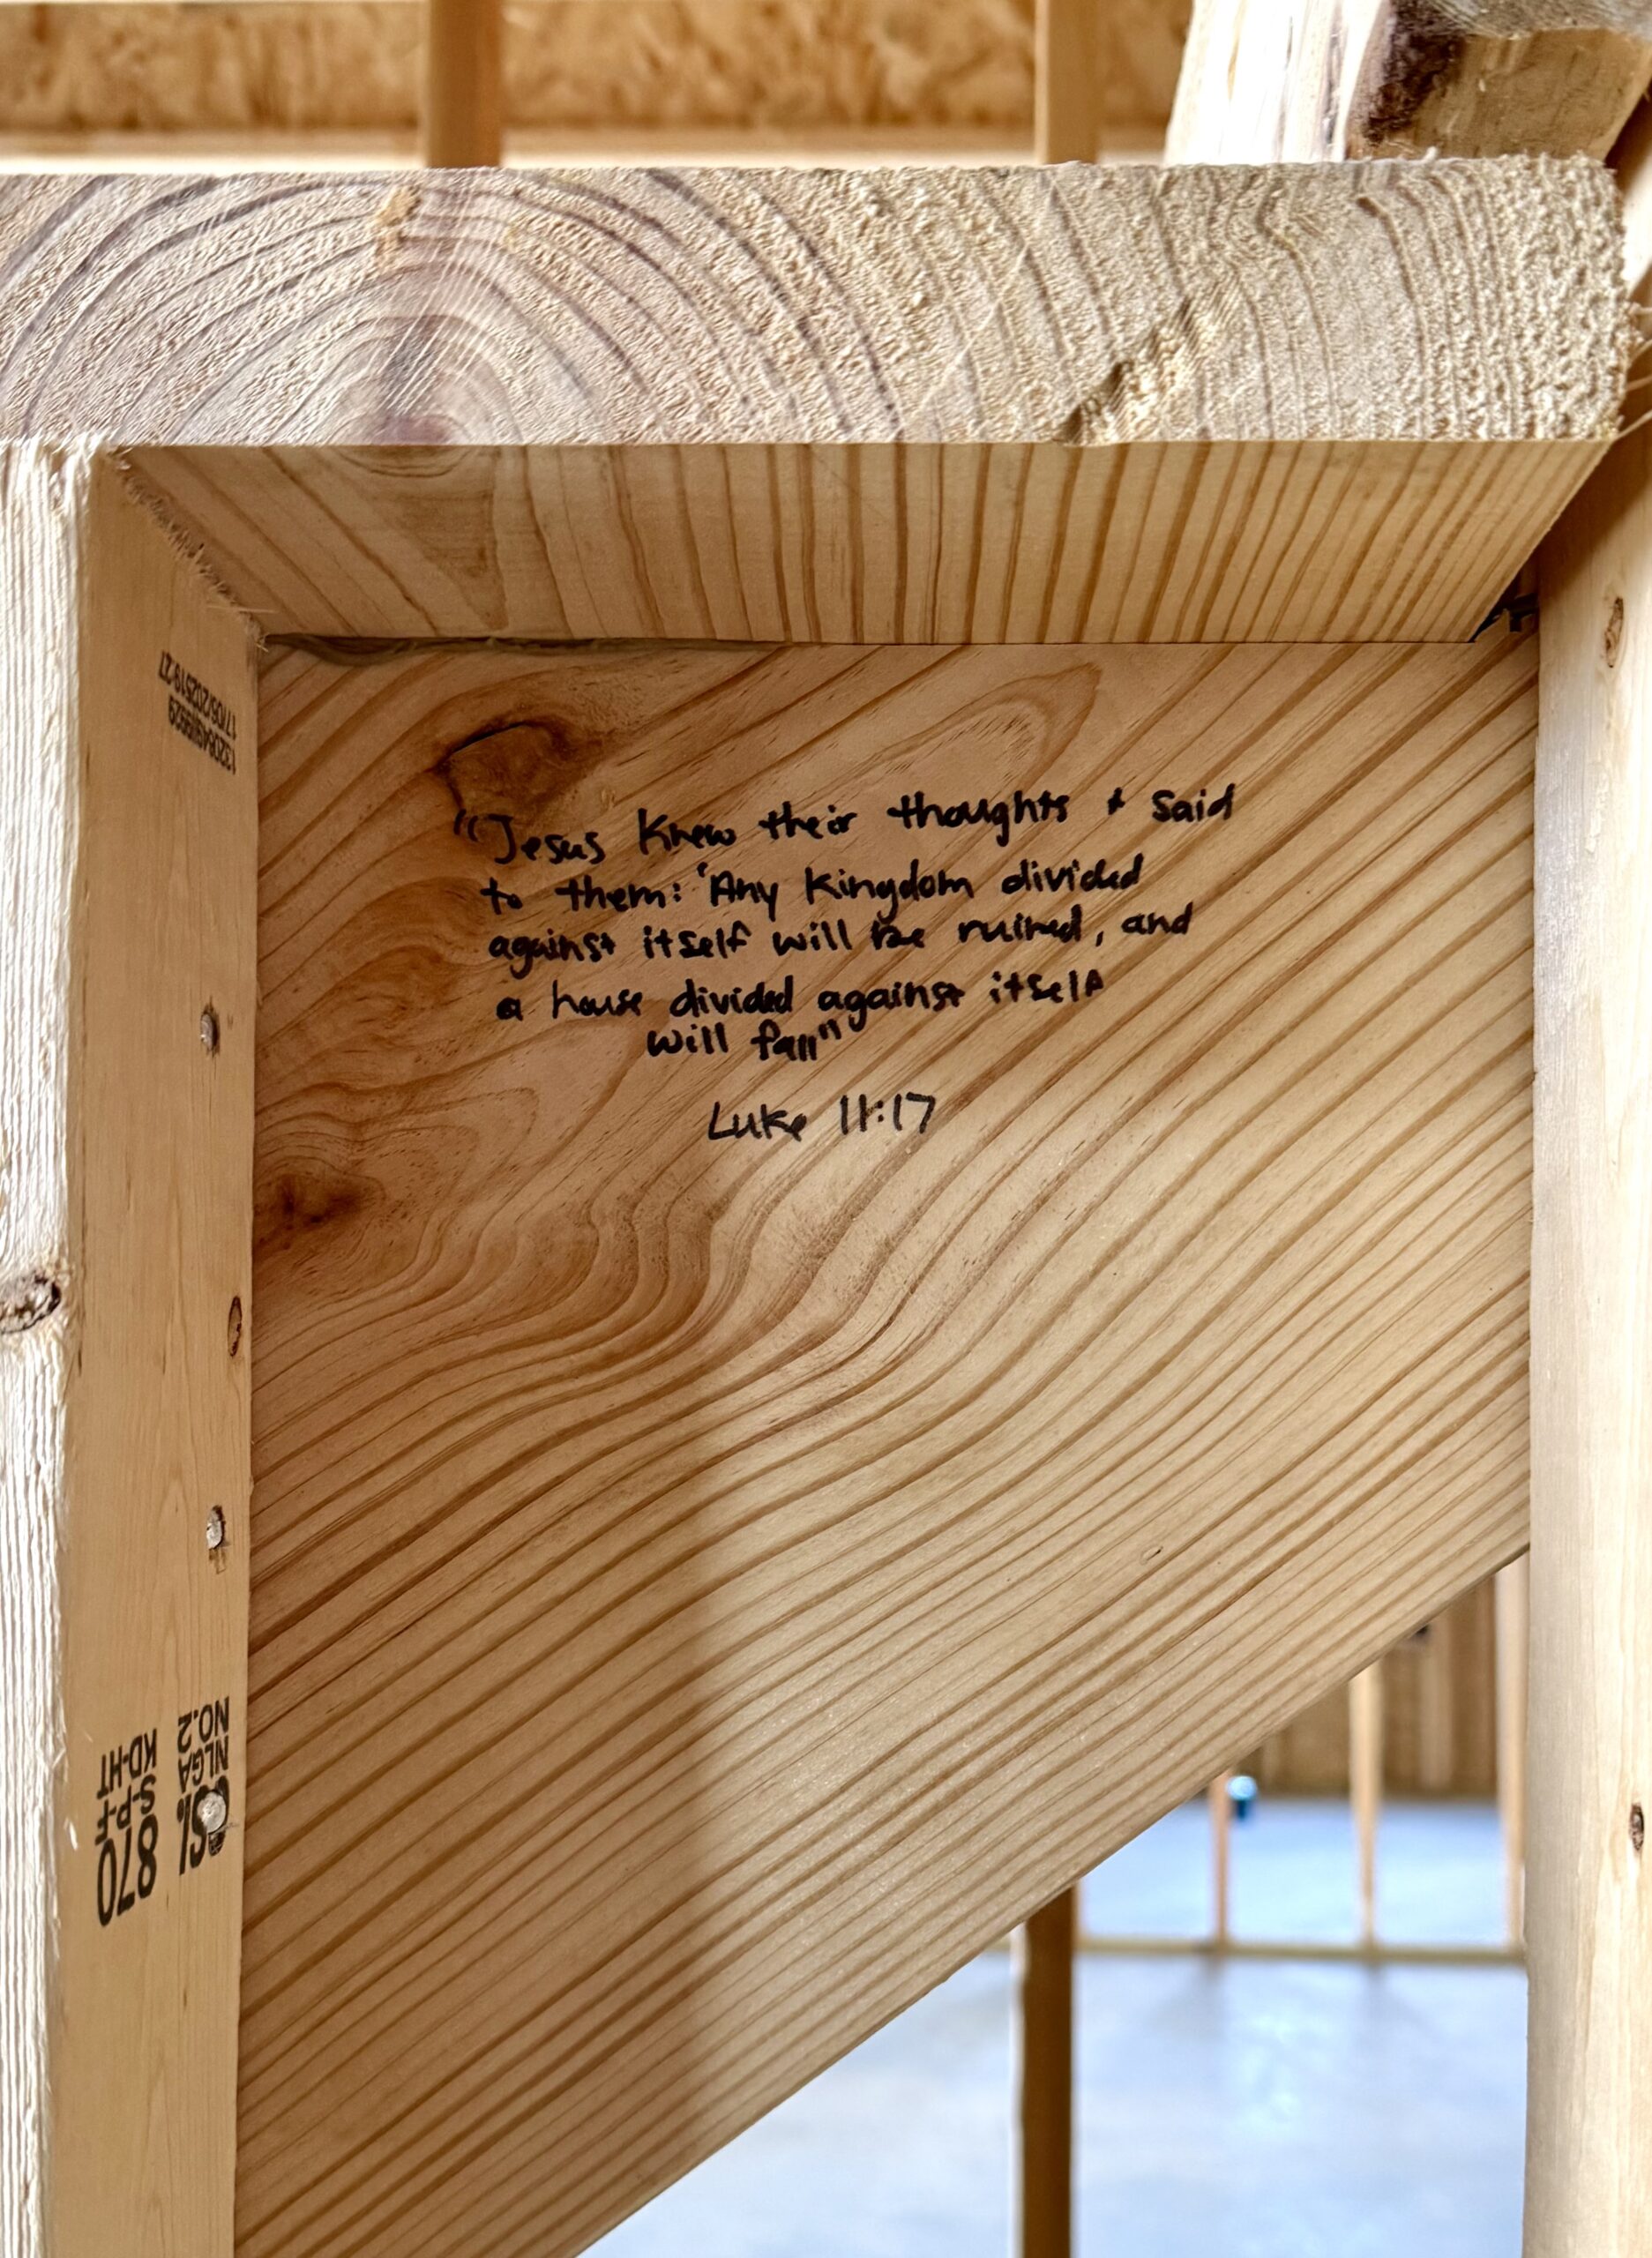 "Jesus Knew their thoughts & said
to them: 'Any Kingdom divided
against itself will be ruined, and
a house divided against itself
will fall"
Luke 11:17
NLGA
NO.2
870
S-P-F
KD-HT